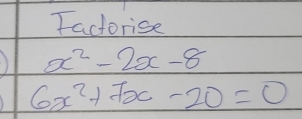 Factorise
x² - 2x - 8
6x² + 7x - 20 = 0